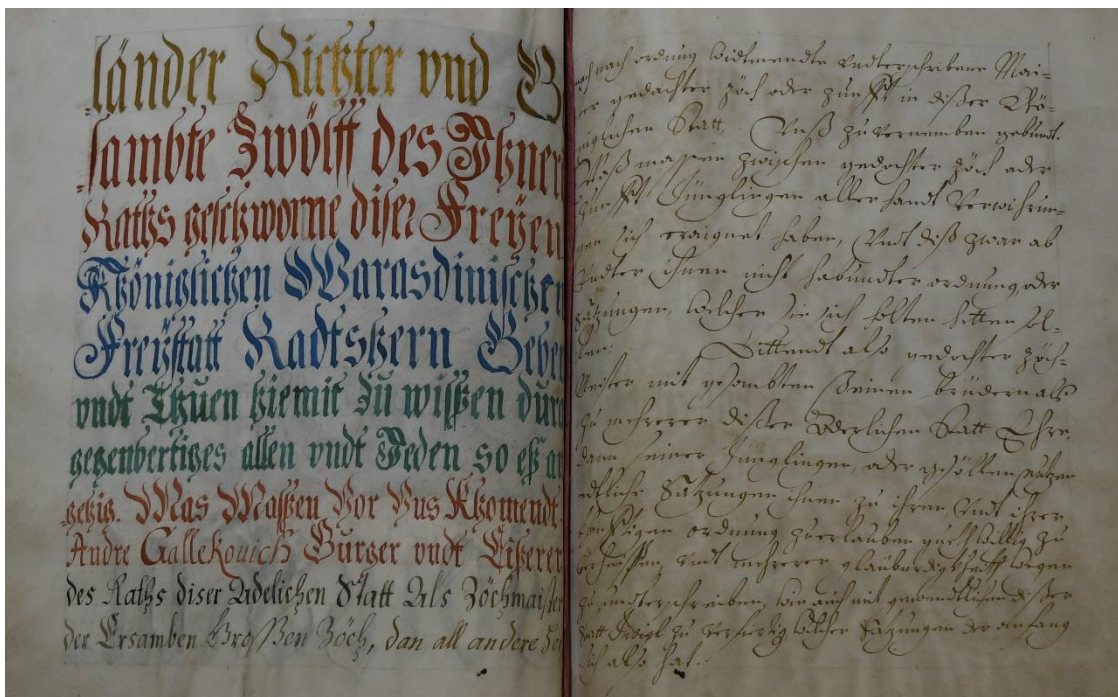 länder Richter vnd B
sambte Zwölff des Ihner
Raths geschworne diser Freÿen
Khöniglichen Warasdinischen
Freÿstatt Radtskern Geben
vndt Thuen hiemit zu wissen durch
gegenwertiges allen vndt Jeden so eß an
gehig. Was Massen Vor Vns Khomendt
Andre Gallekovich Burger vndt
des Raths diser Adelichen Statt Als Zöchmaister
der Ersamben Grossen Zöch, dan all andere
nach ordnung vndterschribene Mai-
gedachter zöch oder zunfft in diser Khö-
niglichen Statt, Vnß zu vernemben gebendt.
Waß massen zwischen gedachter zöch oder
Zunfft Jünglingen allerhandt Verwihrun-
gen sich eraignet haben, Vndt diß zwar ab
Vndter ihnen nicht habendter ordnung oder
Satzungen, welcher sie sich halten hetten sol-
len: Bittendt also gedachter zöch-
Meister mit gesambten seinen brüdern als
zu mehrerer diser Adelichen Statt Ehre,
dann seiner Jünglingen, oder gesöllen nutzen
etliche Satzungen ihnen zu ihren Vndt ihrer
künfftigen ordnung zuerlauben guethwillig zu
Vndt mehrerer glaubwürdigkheit wegen
zu vndterschreiben, wie auch mit gewendlichen diser
Statt Insigl zu welcher Satzungen der anfang
sich also hat.